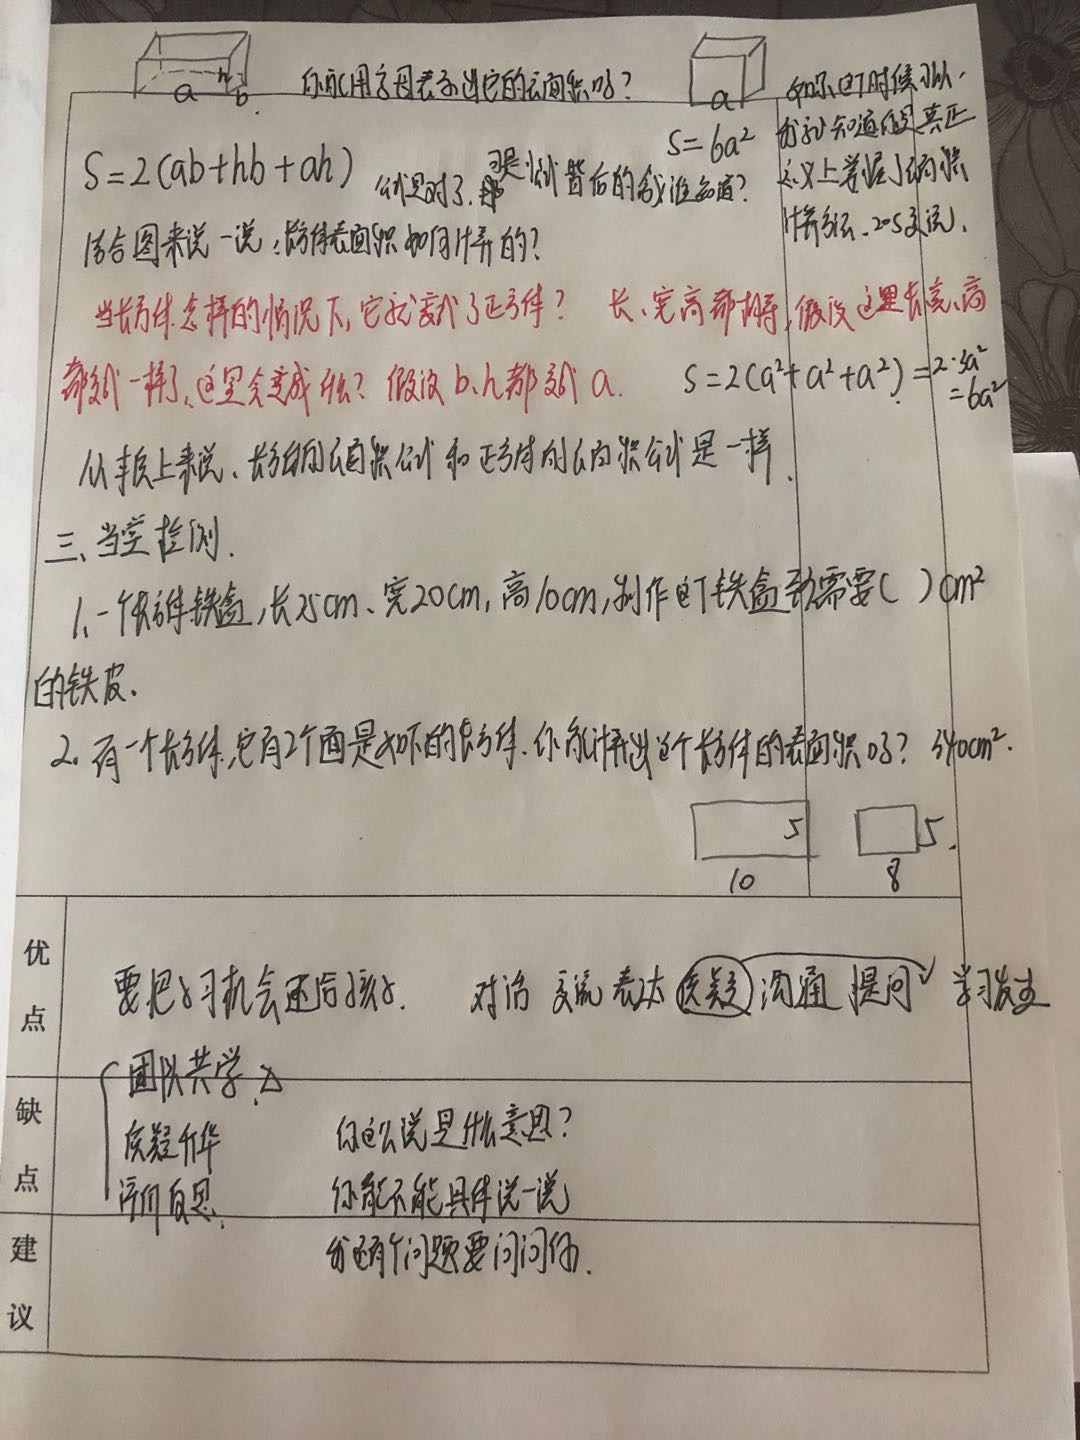 a h b
你能用字母表示出它的表面积吗?
a
如果这个时候可以,
S=2(ab+hb+ah)
S=6a²
我就知道你是真正
公式是对了,可是公式背后的我谁知道?
意义上掌握了表面积
计算方法、205交流.
结合图来说一说,长方体表面积如何计算的?
当长方体怎样的情况下,它就变成了正方体? 长、宽、高都相等,假设这里长、宽、高
都变成一样了,这里会变成什么?假设b、h都变成a.
S=2(a²+a²+a²)=2·3a²
=6a²
从本质上来说、长方体的表面积公式和正方体的表面积公式是一样.
三、当堂检测.
1、一个长方体铁盒,长25cm、宽20cm,高10cm,制作这个铁盒至少需要( )cm²
的铁皮.
2、有一个长方体,它有2个面是如下的长方体.你能计算出这个长方体的表面积吗? 340cm².
5 5.
10 8
优点
要把学习机会还给孩子. 对话 交流 表达 质疑 沟通 提问 学习发生
团队共学
缺点
质疑升华 你这么说是什么意思?
评价反思. 你能不能具体说一说
建议
我还有个问题要问问你.